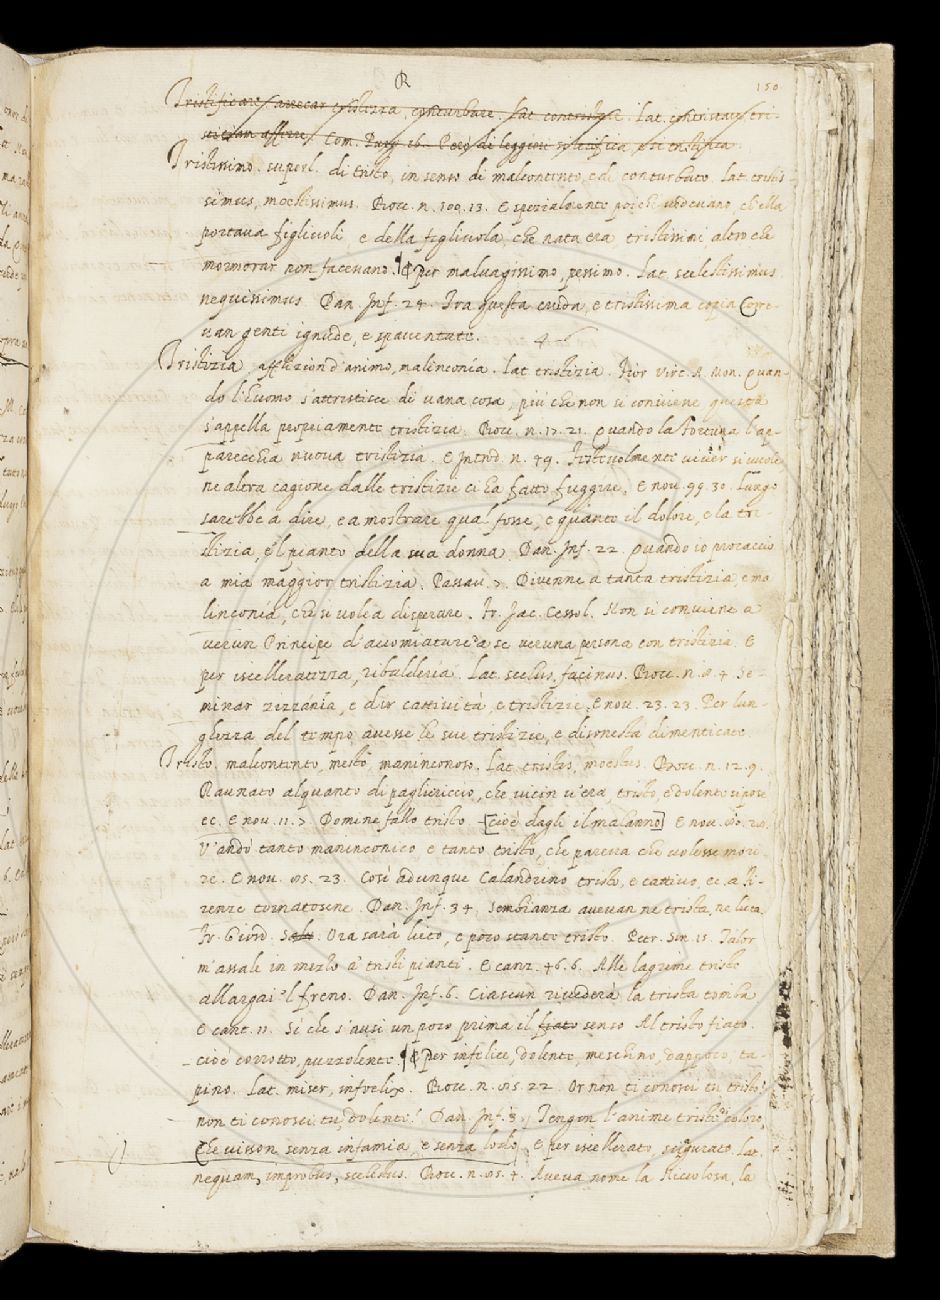 R
150
Tristificare, arrecar tristizia, conturbare. Lat. contristare. Lat. contristare, tri-
stitiam afferre. Com. Purg. 16. Però di leggieri
Tristissimo. superl. di tristo, in senso di malcontento, e di conturbato. Lat. tristis-
simus, moestissimus. Bocc. n. 100. 13. E spezialmente poiche vedevano ch'ella
portava figliuoli e della figliuola, che nata era tristissimi altro che
mormorar non facevano. ¶ E per malvagissimo, pessimo. Lat. scelestissimus
nequissimus. Dan. Inf. 24. Tra questa cruda, e tristissima copia Corre-
van genti ignude, e spaventate.
Tristizia, afflizion d'animo, malinconía. Lat. tristizia. Fior. Virt. A. Mon. Quan-
do l'huomo s'attristisce di vana cosa, più che non si conviene questa
s'appella propriamente tristizia. Bocc. n. 17. 21. Quando la Fortuna l'ap-
parecchia nuova tristizia. E Introd. n. 49. Festevolmente viver si vuole
ne altra cagione dalle tristizie ci ha fatto fuggire. E nov. 99. 30. Lungo
sarebbe a dire, e a mostrare qual fosse, e quanto il dolore, e la tri-
stizia, e'l pianto della sua donna. Dan. Inf. 22. Quando io procaccio
a mia maggior tristizia. Passav. 7. Divenne a tanta tristizia, e ma
linconia, che si volea disperare. Fr. Jac. Cessol. Non si conviene a
verun Principe d'accomiatare a se veruna persona con tristizia. E
per iscelleratezza, ribalderia. Lat. scelus, facinus. Bocc. n. 8. 4. Se-
minar zizzánia, e dir cattività, e tristizie, E nov. 23. 23. Per lun-
ghezza del tempo avesse le sue tristizie, e disonesta dimenticate.
Tristo. malcontento, mesto, maninconoso. Lat. tristis, moestus. Bocc. n. 12. 9.
Raunato alquanto di pagliericcio, che vicin v'era, tristo, e dolente si pose
ec. E nov. 11. 7. Domine fallo tristo [cioè dagli il malanno] E nov. 80. 20.
V'andò tanto maninconico e tanto tristo, che pareva che volesse mori-
re. E nov. 85. 23. Così adunque Calandrino tristo, e cattivo, ec. a Fi-
renze tornatosene. Dan. Inf. 34. Sembianza avevan nè trista, nè lieta.
Fr. Giord. Ora sarà lieto, e poco stante tristo. Petr. Son. 15. Talor
m'assale in mezzo a' tristi pianti. E canz. 46. 6. Alle lagrime triste
allargai'l freno. Dan. Inf. 6. Ciascun rivederà la trista tomba.
E cant. 11. Sì che s'ausi un poco prima il fiato senso Al tristo fiato.
cioè corrotto, puzzolente. ¶ E per infelice, dolente, meschino, dappoco, ta-
pino. Lat. miser, infoelix. Bocc. n. 85. 22. Or non ti conosci tu tristo!
non ti conosci tu, dolente! Dan. Inf. 3. Tengon l'anime triste di coloro,
Che visson senza infamia, e senza lodo. E per iscellerato, sciagurato. Lat.
nequam, improbus, scelestus. Bocc. n. 85. 4. Aveva nome la Niccolosa, la